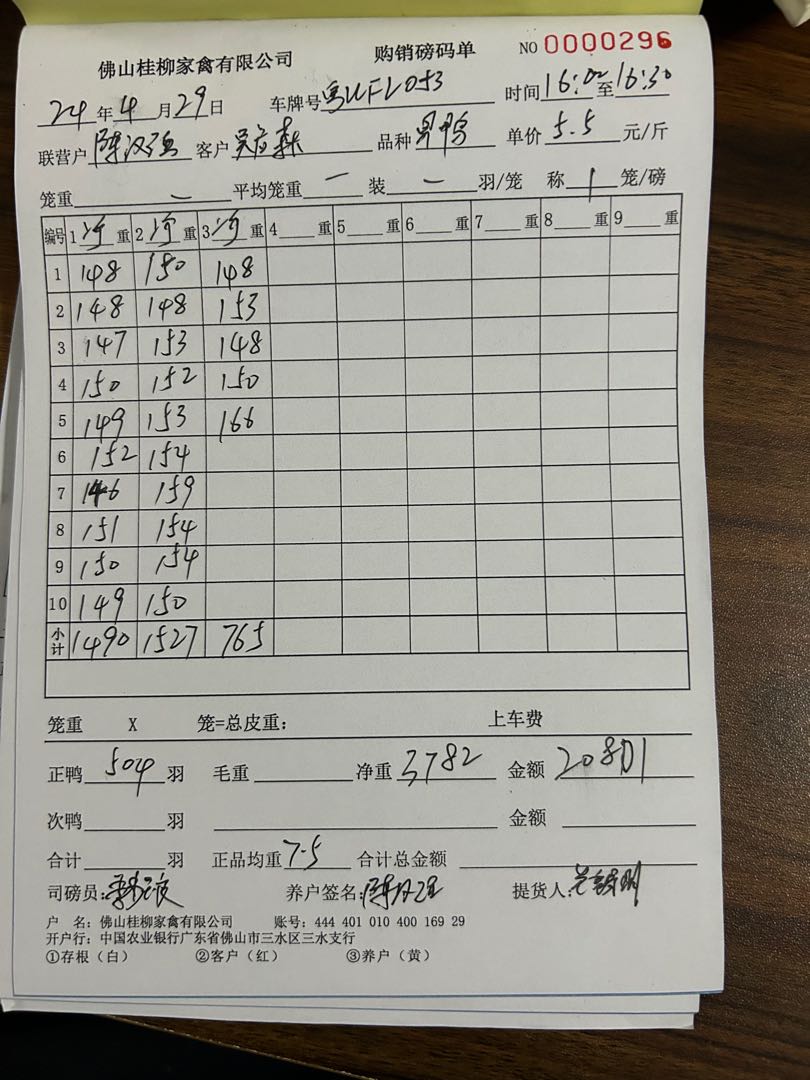 佛山桂柳家禽有限公司 购销磅码单 NO 0000296
24年4月29日 车牌号粤UFL053 时间16:02至16:30
联营户 陈汉强 客户 品种 男鸭 单价 5.5 元/斤
笼重 一 平均笼重 一 装 一 羽/笼 称 1 笼/磅
编号 1净重 2净重 3净重 4重 5重 6重 7重 8重 9重
1 148 150 148
2 148 148 153
3 147 153 148
4 150 152 150
5 149 153 166
6 152 154
7 146 159
8 151 154
9 150 154
10 149 150
小计 1490 1527 765
笼重 X 笼=总皮重: 上车费
正鸭 504 羽 毛重 净重 3782 金额 20801
次鸭 羽 金额
合计 羽 正品均重 7.5 合计总金额
司磅员: 养户签名: 提货人:
户 名: 佛山桂柳家禽有限公司 账号: 444 401 010 400 169 29
开户行: 中国农业银行广东省佛山市三水区三水支行
①存根(白) ②客户(红) ③养户(黄)